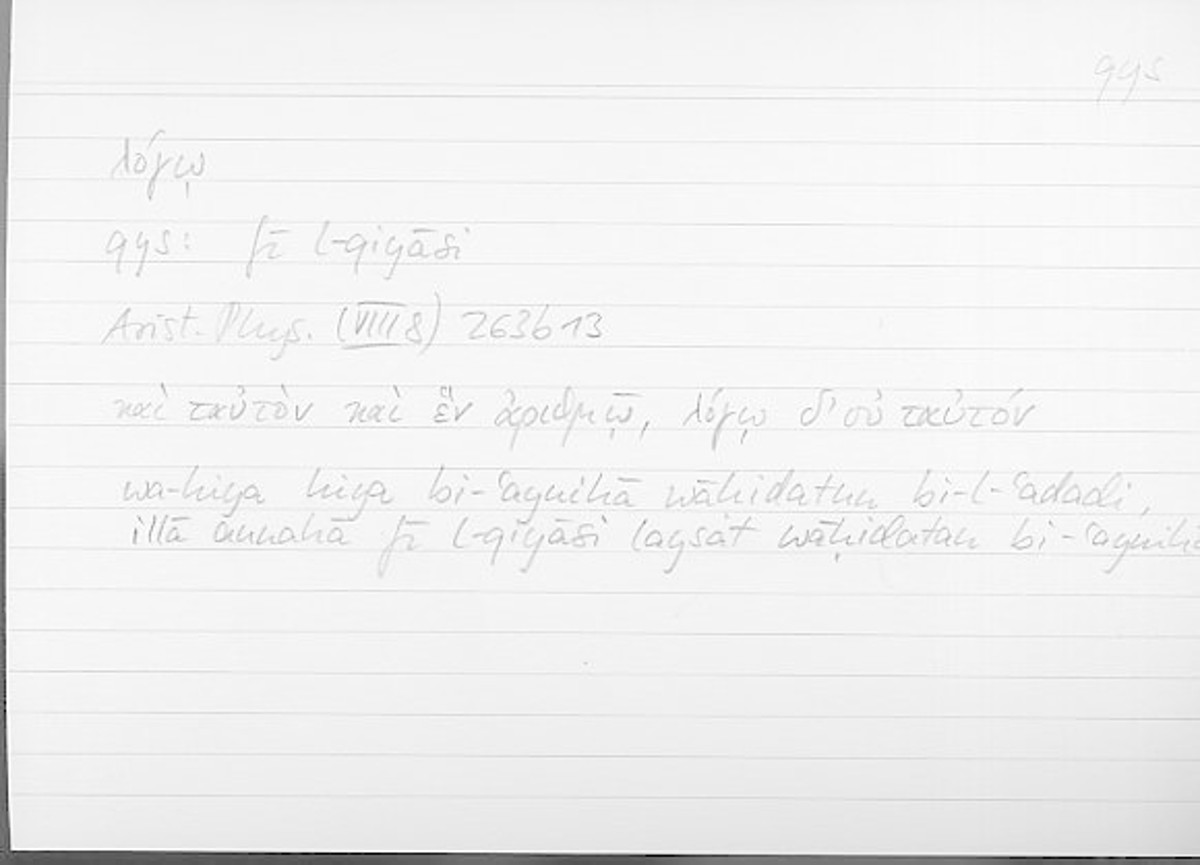 qys
λόγῳ
qys: fī l-qiyāsi
Arist. Phys. (VIII 8) 263b13
καὶ ταὐτὸν καὶ ἓν ἀριθμῷ, λόγῳ δ' οὐ ταὐτόν
wa-hiya hiya bi-ʿaynihā wāḥidatun bi-l-ʿadadi,
illā annahā fī l-qiyāsi laysat wāḥidatan bi-ʿaynihā